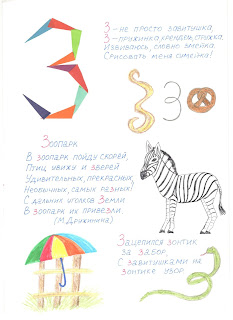 З - не просто завитушка,
З - пружинка, крендель, стружка.
Извиваюсь, словно змейка
Срисовать меня сумей-ка!
Зоопарк
В зоопарк пойду скорей,
Птиц увижу и зверей
Удивительных, прекрасных,
Необычных, самых разных!
С дальних уголков Земли
В зоопарк их привезли.
(М. Дружинина)
Зацепился зонтик
за забор,
С завитушками на
зонтике узор.